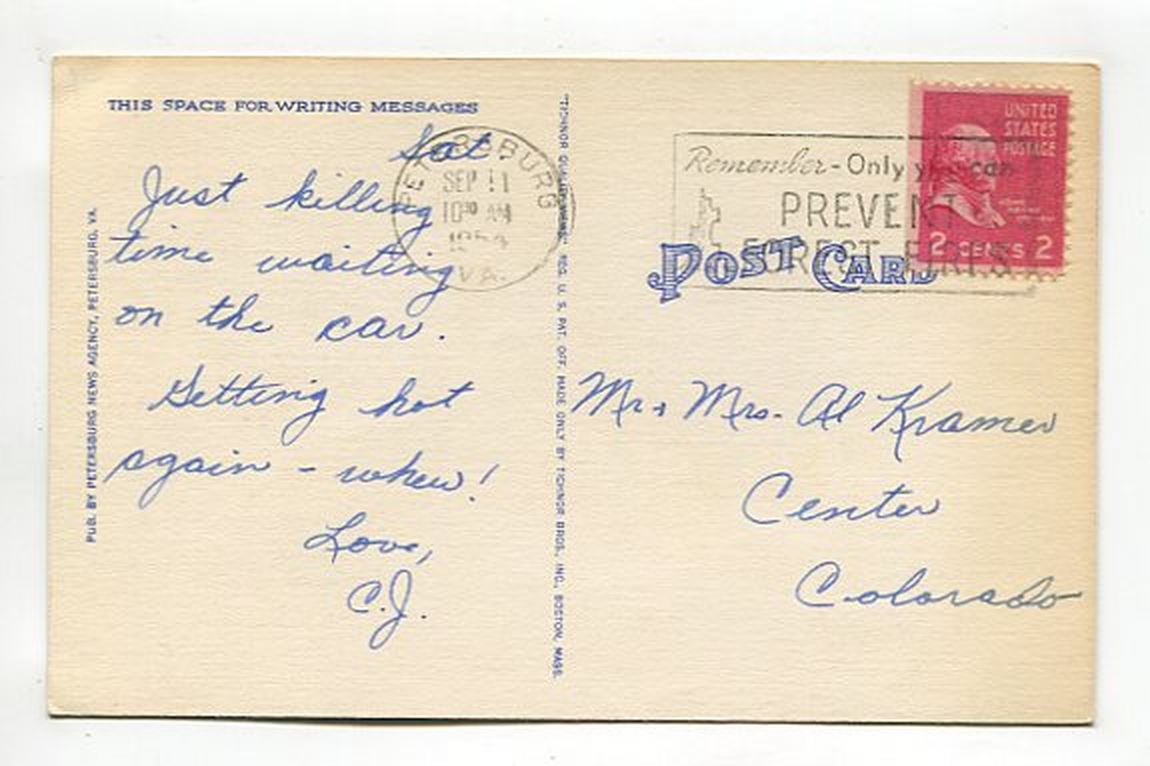 THIS SPACE FOR WRITING MESSAGES
Sat.
Just killing
time waiting
on the car.
Getting hot
again - whew!
Love,
C.J.
PUB. BY PETERSBURG NEWS AGENCY, PETERSBURG, VA.
REG. U. S. PAT. OFF. MADE ONLY BY TICHNOR BROS., INC., BOSTON, MASS.
PETERSBURG
SEP 11
10 AM
VA.
Remember - Only you can
PREVENT
FOREST FIRES
UNITED
STATES
POSTAGE
2 CENTS 2
POST CARD
Mr. & Mrs. Al Kramer
Center
Colorado